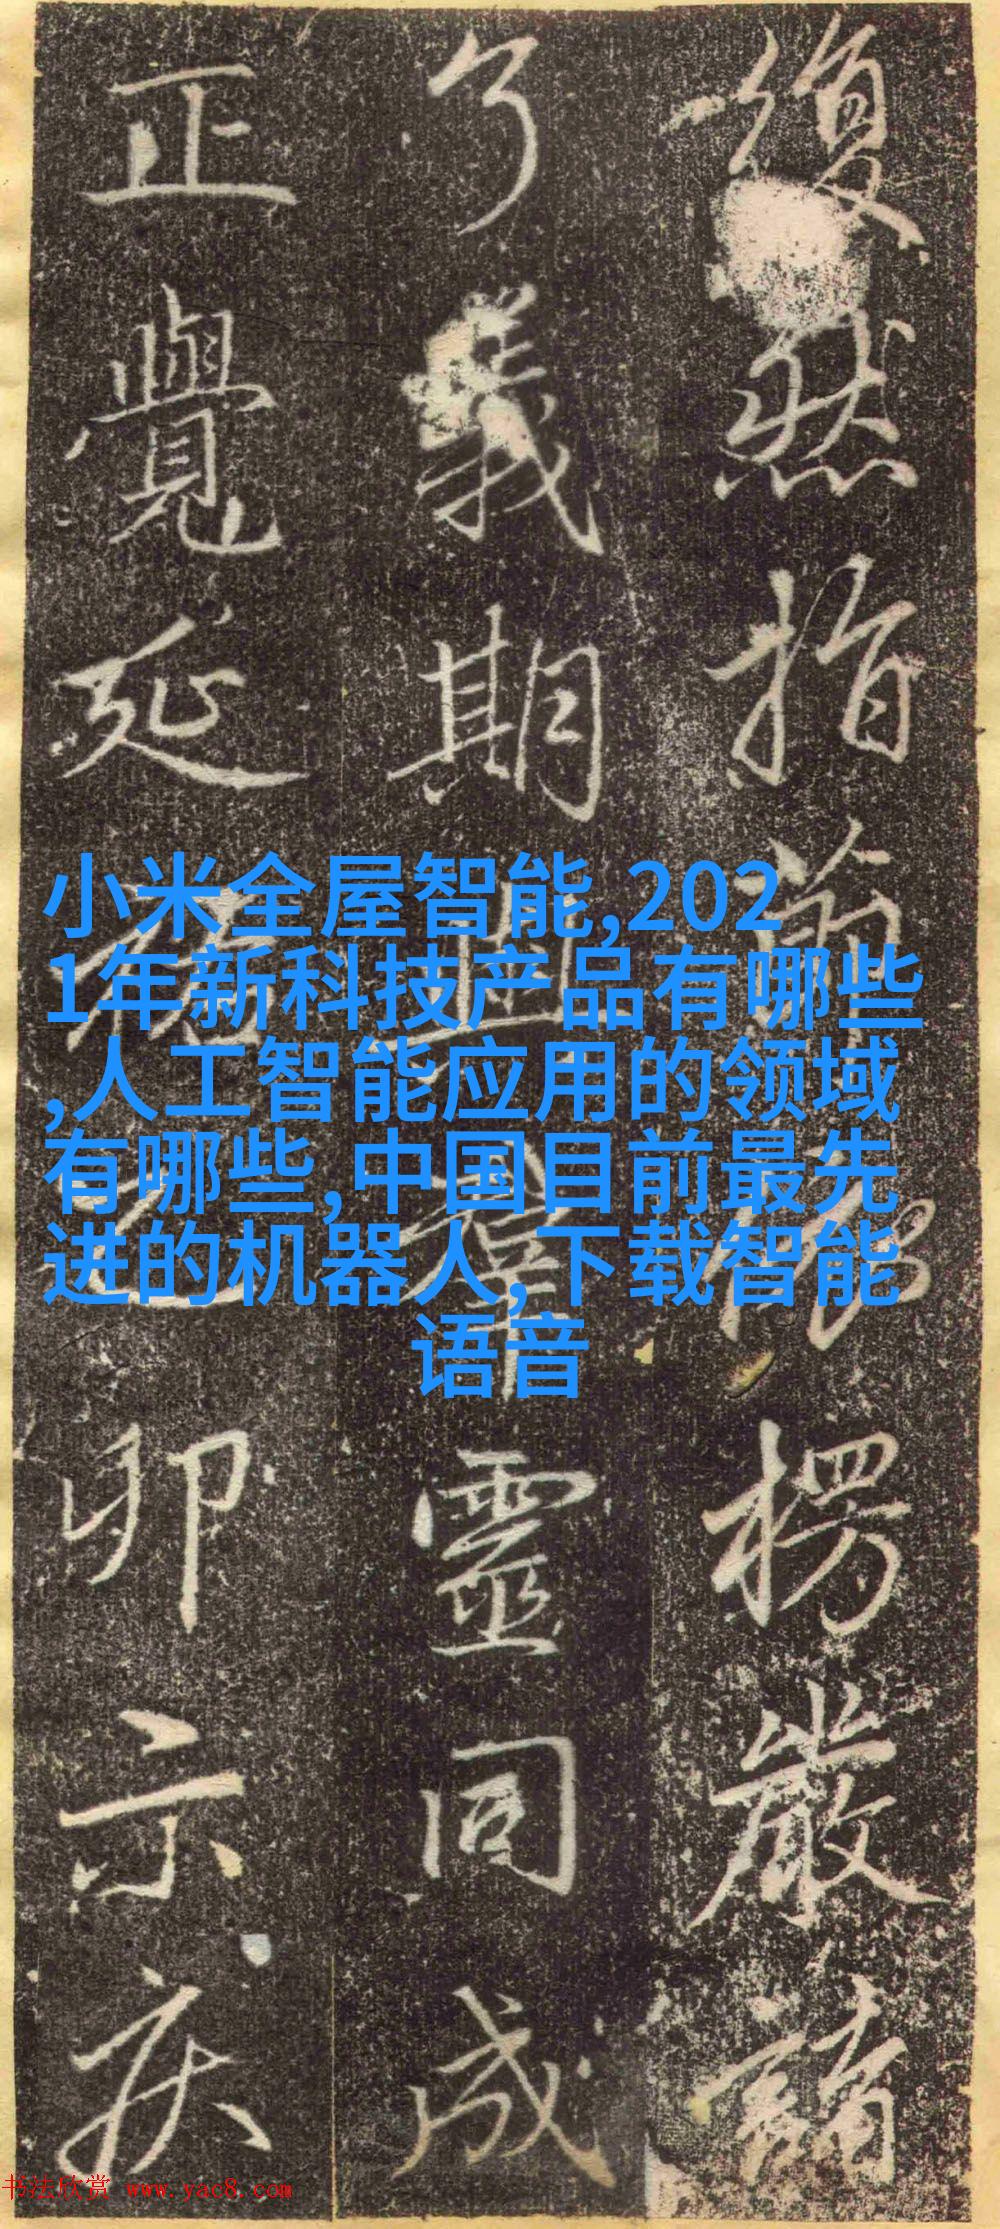 復然指楞嚴
了義期靈同成
正覺延卯示疾
小米全屋智能,202
1年新科技产品有哪些
,人工智能应用的领域
有哪些,中国目前最先
进的机器人,下载智能
语音
书法欣赏 www.yac8.com